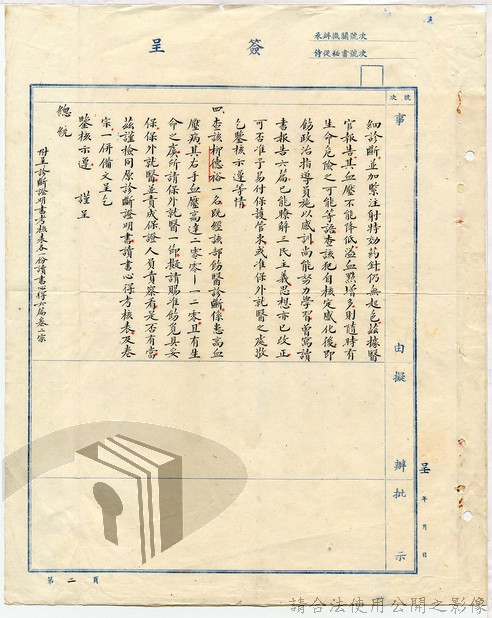 簽呈
承辦機關號次
侍從秘書號次
號次
事由
擬辦
批示
呈 年 月 日
細診斷並加緊注射特効藥針仍無起色茲據醫
官報告其血壓不能降低溢血點增多則隨時有
生命危險之可能等語查該犯自核定感化後即
飭政治指導員施以感訓尚能努力學習曾寫讀
書報告六篇已能瞭解三民主義思想亦已改正
可否准予易付保護管束或准保外就醫之處敬
乞鑒核示遵等情
四、查該柳德裕一名既經該部飭醫診斷係患高血
壓病其右手血壓高達二零零—一二零且有生
命之虞所請保外就醫一節擬請賜准飭覓具妥
保保外就醫並責成保證人負責察看是否有當
茲謹檢同原診斷證明書讀書心得考核表及卷
宗一併備文呈乞
鑒核示遵 謹呈
總統
附呈診斷證明書考核表各一份讀書心得六篇卷二宗
第二頁
請合法使用公開之影像